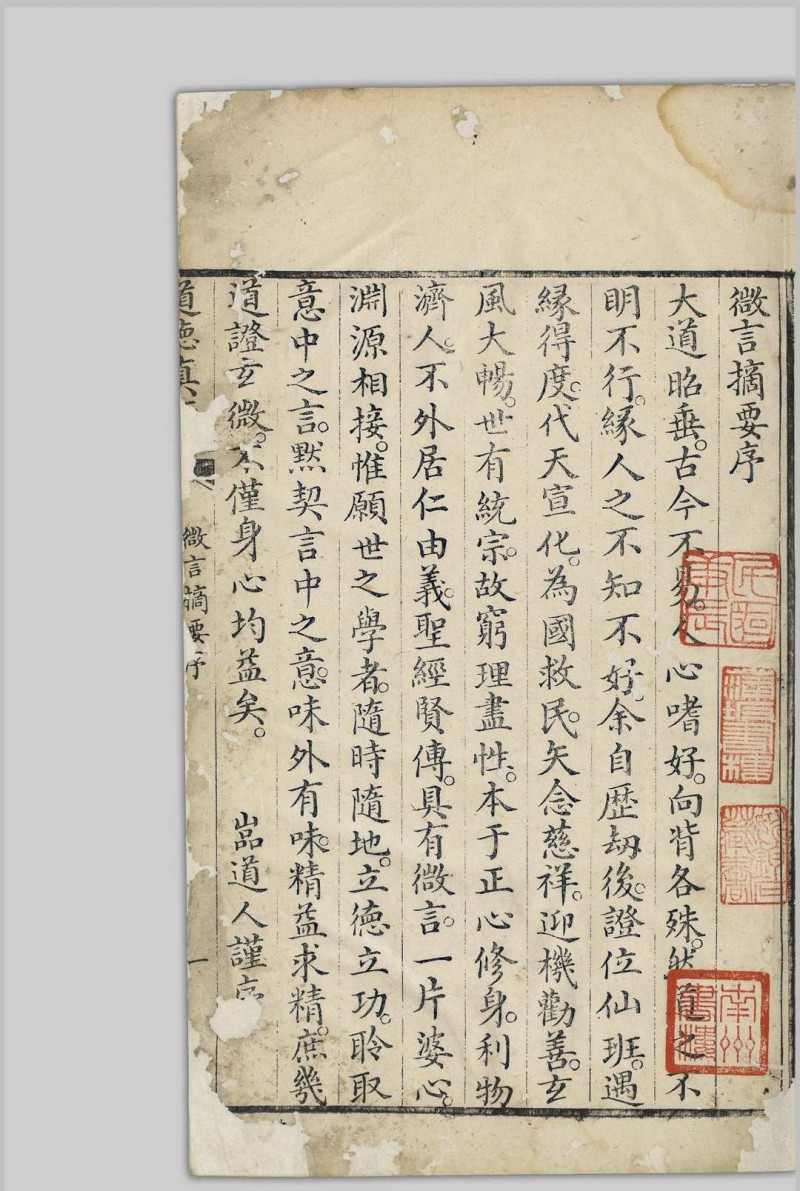 微言摘要序
大道昭垂。古今不易。人心嗜好。向背各殊。然道之不
明不行。緣人之不知不好。余自歷劫後。證位仙班。遇
緣得度。代天宣化。為國救民。矢念慈祥。迎機勸善。玄
風大暢。世有統宗。故窮理盡性。本于正心修身。利物
濟人。不外居仁由義。聖經賢傳。具有微言。一片婆心。
淵源相接。惟願世之學者。隨時隨地。立德立功。聆取
意中之言。默契言中之意。味外有味。精益求精。庶幾
道證玄微。不僅身心均益矣。 嵓道人謹序
道德真
微言摘要序
一
南州書樓